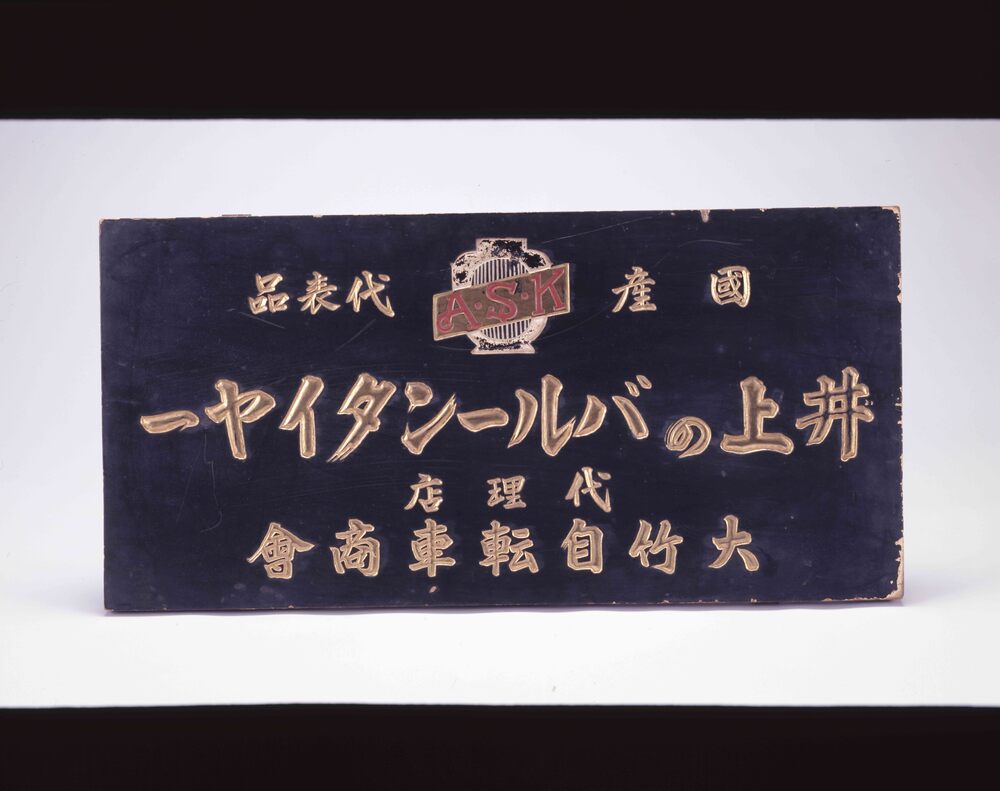 國産 A.S.K 代表品
井上のバルーンタイヤー
代理店
大竹自転車商會